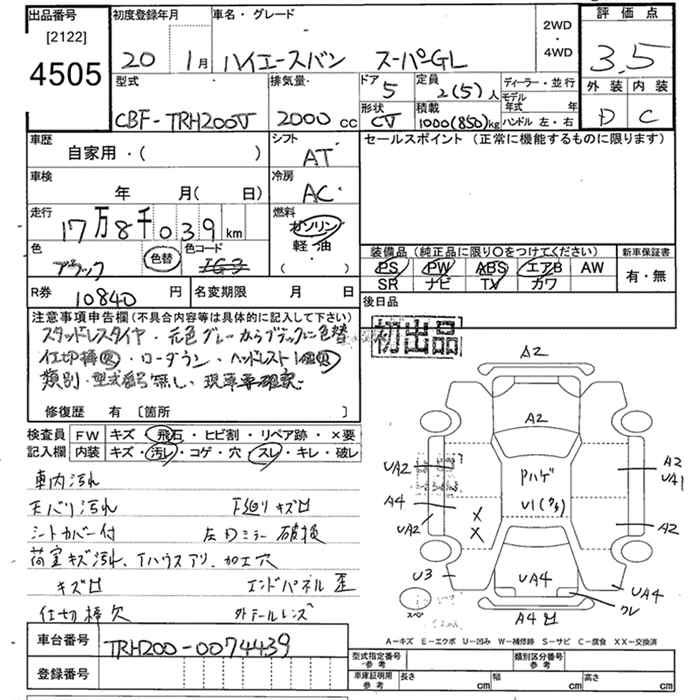 出品番号
[2122]
4505
初度登録年月
20 1月
車名・グレード
ハイエースバン スーパーGL
2WD
・
4WD
評価点
3.5
外装 内装
D C
型式
CBF-TRH200V
排気量
2000 cc
ドア
5
定員
2(5)人
形状
CV
積載
1000(850)kg
ディーラー・並行
モデル
年式 年
ハンドル 左・右
車歴
自家用・( )
シフト
AT
車検
年 月( 日)
冷房
AC
走行
17万8千039 km
燃料
ガソリン
軽・油
( )
色
ブラック
色替
色コード
セールスポイント(正常に機能するものに限ります)
装備品(純正品に限り○をつけてください)
PS PW ABS エアB AW
SR ナビ TV カワ
新車保証書
有・無
R券
10840 円
名変期限 月 日
後日品
初出品
注意事項申告欄(不具合内容等は具体的に記入して下さい)
スタッドレスタイヤ・元色グレーからブラックに色替
仕切棒・ローダウン・ヘッドレスト1個
類別・型式番号無し、現車確認
修復歴 有 [箇所 ]
検査員 FW キズ・飛石・ヒビ割・リペア跡・×要
記入欄 内装 キズ・汚レ・コゲ・穴・スレ・キレ・破レ
車内汚れ
天バリ汚れ 下廻りキズ
シートカバー付 左Dミラー破損
荷室キズ汚れ、Tハウスアリ、加工穴
キズ エンドパネル歪
仕切棒欠 外テールレンズ
車台番号
TRH200-0074439
登録番号
A2
A2
UA2
Pハゲ
A2
UA1
A4
U1
UA2
X
X
A2
U3
UA4
UA4
スペア
ワレ
A4
A-キズ E-エクボ U-凹み W-補修跡 S-サビ C-腐食 XX-交換済
型式指定番号
参考
類別区分番号
参考
車庫証明用
参考
長さ cm
幅 cm
高さ cm